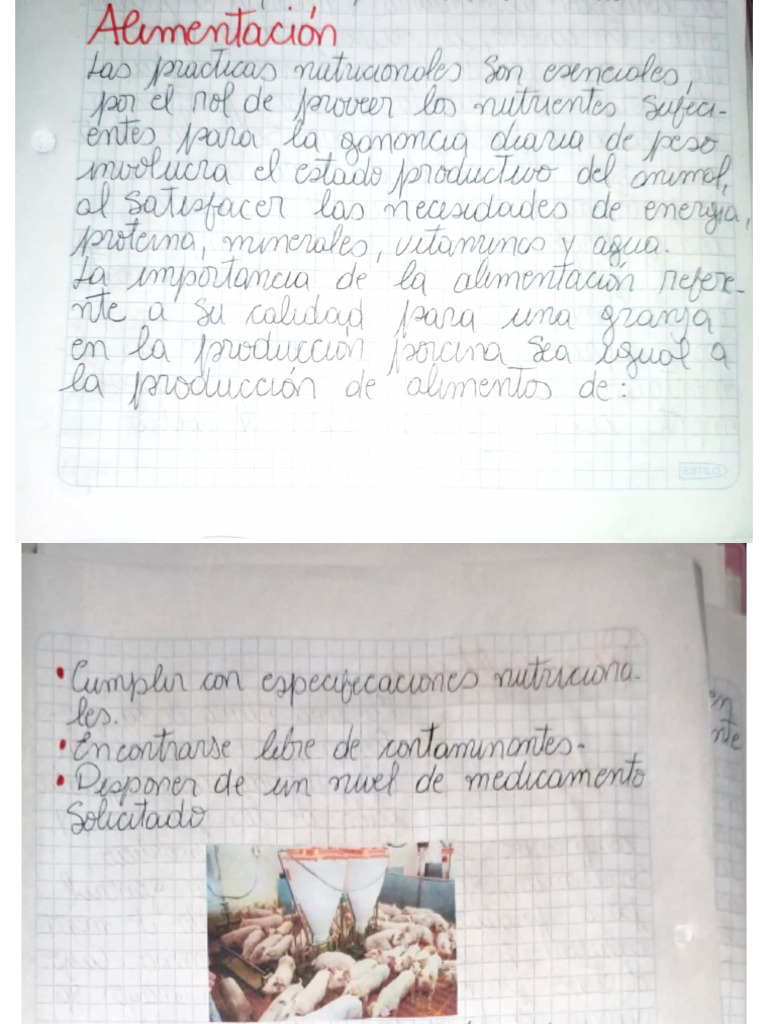 Alimentación
Las practicas nutricionales son esenciales,
por el rol de proveer los nutrientes sufici-
entes para la ganancia diaria de peso
involucra el estado productivo del animal,
al satisfacer las necesidades de energia,
proteina, minerales, vitaminas y agua.
La importancia de la alimentación refere-
nte a su calidad para una granja
en la producción porcina sea igual a
la producción de alimentos de:
ESTILO
• Cumplir con especificaciones nutriciona-
les.
• Encontrarse libre de contaminantes.
• Disponer de un nivel de medicamento
solicitado
en
nte